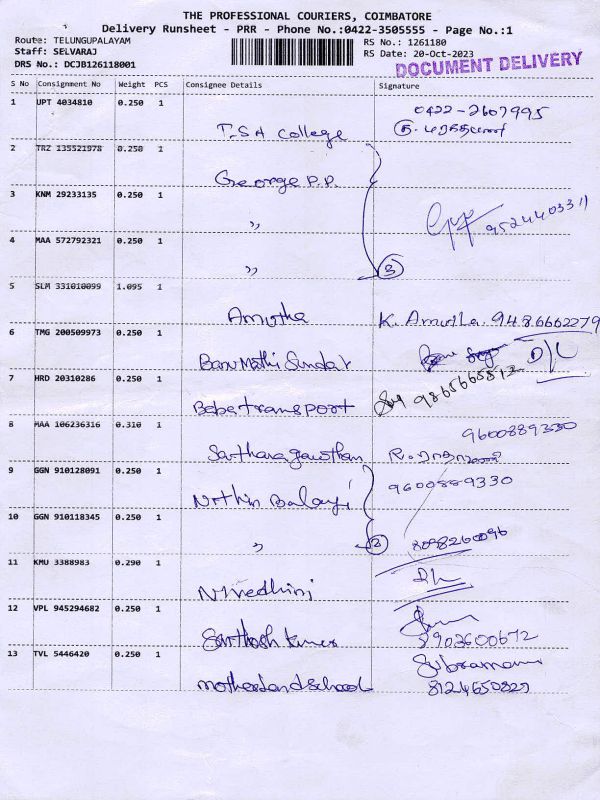 THE PROFESSIONAL COURIERS, COIMBATORE
Delivery Runsheet - PRR - Phone No.:0422-3505555 - Page No.:1
Route: TELUNGUPALAYAM RS No.: 1261180
Staff: SELVARAJ RS Date: 20-Oct-2023
DRS No.: DCJB126118001 DOCUMENT DELIVERY
S No Consignment No Weight PCS Consignee Details Signature
1 UPT 4034810 0.250 1 0422-2607995
T.S.A College
2 TRZ 135521978 0.250 1
George P.P.
3 KNM 29233135 0.250 1
"
4 MAA 572792321 0.250 1
" 3
5 SLM 331010099 1.095 1
Amutha K. Amutha. 9486662279
6 TMG 200509973 0.250 1 D/L
Banu Mathi Sundar
7 HRD 20310286 0.250 1
Bebe transport
8 MAA 106236316 0.310 1 9600889330
9 GGN 910128091 0.250 1 9600889330
Nithin Balaji
10 GGN 910118345 0.250 1
" 2 8098260096
11 KMU 3388983 0.290 1
Nivedhini
12 VPL 945294682 0.250 1
Santhosh kumar
13 TVL 5446420 0.250 1
motherland school